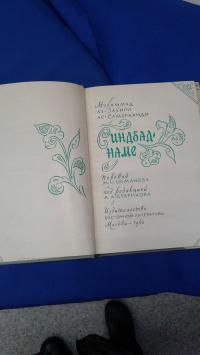 Мухаммад
аз-Захири
ас-Самарканди
Синдбад-
наме
Перевод
М.-Н. Османова
под редакцией
А. А. Старикова
Издательство
восточной литературы
Москва - 1960